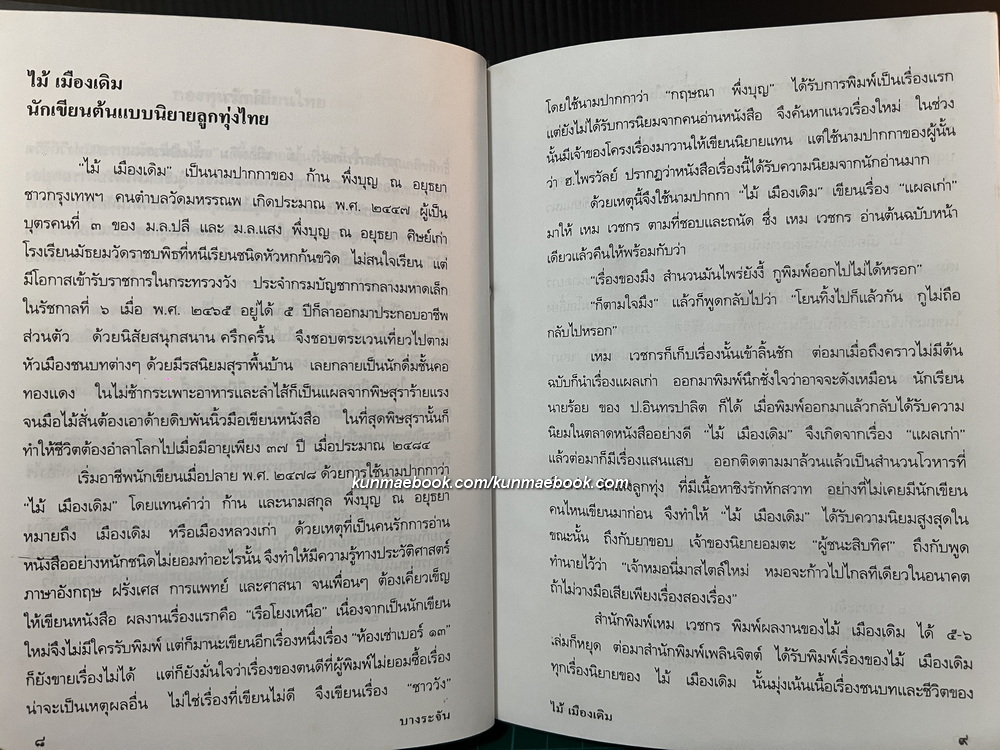 ไม้ เมืองเดิม
นักเขียนต้นแบบนิยายลูกทุ่งไทย
"ไม้ เมืองเดิม" เป็นนามปากกาของ ก้าน พึ่งบุญ ณ อยุธยา
ชาวกรุงเทพฯ คนตำบลวัดมหรรณพ เกิดประมาณ พ.ศ. ๒๔๔๗ ผู้เป็น
บุตรคนที่ ๓ ของ ม.ล.ปลี และ ม.ล.แสง พึ่งบุญ ณ อยุธยา ศิษย์เก่า
โรงเรียนมัธยมวัดราชบพิธที่หนีเรียนชนิดหัวหกก้นขวิด ไม่สนใจเรียน แต่
มีโอกาสเข้ารับราชการในกระทรวงวัง ประจำกรมบัญชาการกลางมหาดเล็ก
ในรัชกาลที่ ๖ เมื่อ พ.ศ. ๒๔๖๕ อยู่ได้ ๕ ปีก็ลาออกมาประกอบอาชีพ
ส่วนตัว ด้วยนิสัยสนุกสนาน ครึกครื้น จึงชอบตระเวนเที่ยวไปตาม
หัวเมืองชนบทต่างๆ ด้วยมีรสนิยมสุราพื้นบ้าน เลยกลายเป็นนักดื่มชั้นคอ
ทองแดง ในไม่ช้ากระเพาะอาหารและลำไส้ก็เป็นแผลจากพิษสุราร้ายแรง
จนมือไม้สั่นต้องเอาด้ายดิบพันนิ้วมือเขียนหนังสือ ในที่สุดพิษสุรานั้นก็
ทำให้ชีวิตต้องอำลาโลกไปเมื่อมีอายุเพียง ๓๗ ปี เมื่อประมาณ ๒๔๘๔
เริ่มอาชีพนักเขียนเมื่อปลาย พ.ศ. ๒๔๗๘ ด้วยการใช้นามปากกาว่า
"ไม้ เมืองเดิม" โดยแทนคำว่า ก้าน และนามสกุล พึ่งบุญ ณ อยุธยา
หมายถึง เมืองเดิม หรือเมืองหลวงเก่า ด้วยเหตุที่เป็นคนรักการอ่าน
หนังสืออย่างหนักชนิดไม่ยอมทำอะไรนั้น จึงทำให้มีความรู้ทางประวัติศาสตร์
ภาษาอังกฤษ ฝรั่งเศส การแพทย์ และศาสนา จนเพื่อนๆ ต้องเคี่ยวเข็ญ
ให้เขียนหนังสือ ผลงานเรื่องแรกคือ "เรือโยงเหนือ" เนื่องจากเป็นนักเขียน
ใหม่จึงไม่มีใครรับพิมพ์ แต่ก็มานะเขียนอีกเรื่องหนึ่งเรื่อง "ห้องเช่าเบอร์ ๑๓"
ก็ยังขายเรื่องไม่ได้ แต่ก็ยังมั่นใจว่าเรื่องของตนดีที่ผู้พิมพ์ไม่ยอมซื้อเรื่อง
น่าจะเป็นเหตุผลอื่น ไม่ใช่เรื่องที่เขียนไม่ดี จึงเขียนเรื่อง "ชาววัง"
บางระจัน
๘
โดยใช้นามปากกาว่า "กฤษณา พึ่งบุญ" ได้รับการพิมพ์เป็นเรื่องแรก
แต่ยังไม่ได้รับการนิยมจากคนอ่านหนังสือ จึงค้นหาแนวเรื่องใหม่ ในช่วง
นั้นมีเจ้าของโครงเรื่องมาวานให้เขียนนิยายแทน แต่ใช้นามปากกาของผู้นั้น
ว่า ฮ.ไพรวัลย์ ปรากฏว่าหนังสือเรื่องนี้ได้รับความนิยมจากนักอ่านมาก
ด้วยเหตุนี้จึงใช้นามปากกา "ไม้ เมืองเดิม" เขียนเรื่อง "แผลเก่า"
มาให้ เหม เวชกร ตามที่ชอบและถนัด ซึ่ง เหม เวชกร อ่านต้นฉบับหน้า
เดียวแล้วคืนให้พร้อมกับว่า
"เรื่องของมึง สำนวนมันไพร่ยังงี้ กูพิมพ์ออกไปไม่ได้หรอก"
"ก็ตามใจมึง" แล้วก็พูดกลับไปว่า "โยนทิ้งไปก็แล้วกัน กูไม่ถือ
กลับไปหรอก"
เหม เวชกรก็เก็บเรื่องนั้นเข้าลิ้นชัก ต่อมาเมื่อถึงคราวไม่มีต้น
ฉบับก็นำเรื่องแผลเก่า ออกมาพิมพ์นึกชั่งใจว่าอาจจะดังเหมือน นักเรียน
นายร้อย ของ ป.อินทรปาลิต ก็ได้ เมื่อพิมพ์ออกมาแล้วกลับได้รับความ
นิยมในตลาดหนังสืออย่างดี "ไม้ เมืองเดิม" จึงเกิดจากเรื่อง "แผลเก่า"
แล้วต่อมาก็มีเรื่องแสนแสบ ออกติดตามมาล้วนแล้วเป็นสำนวนโวหารที่
ลูกทุ่ง ที่มีเนื้อหาชิงรักหักสวาท อย่างที่ไม่เคยมีนักเขียน
คนไหนเขียนมาก่อน จึงทำให้ "ไม้ เมืองเดิม" ได้รับความนิยมสูงสุดใน
ขณะนั้น ถึงกับยาขอบ เจ้าของนิยายอมตะ "ผู้ชนะสิบทิศ" ถึงกับพูด
ทำนายไว้ว่า "เจ้าหมอนี่มาสไตล์ใหม่ หมอจะก้าวไปไกลทีเดียวในอนาคต
ถ้าไม่วางมือเสียเพียงเรื่องสองเรื่อง"
สำนักพิมพ์เหม เวชกร พิมพ์ผลงานของไม้ เมืองเดิม ได้ ๕-๖
เล่มก็หยุด ต่อมาสำนักพิมพ์เพลินจิตต์ ได้รับพิมพ์เรื่องของไม้ เมืองเดิม
ทุกเรื่องนิยายของ ไม้ เมืองเดิม นั้นมุ่งเน้นเนื้อเรื่องชนบทและชีวิตของ
ไม้ เมืองเดิม
๙
kunmaebook.com/kunmaebook.com